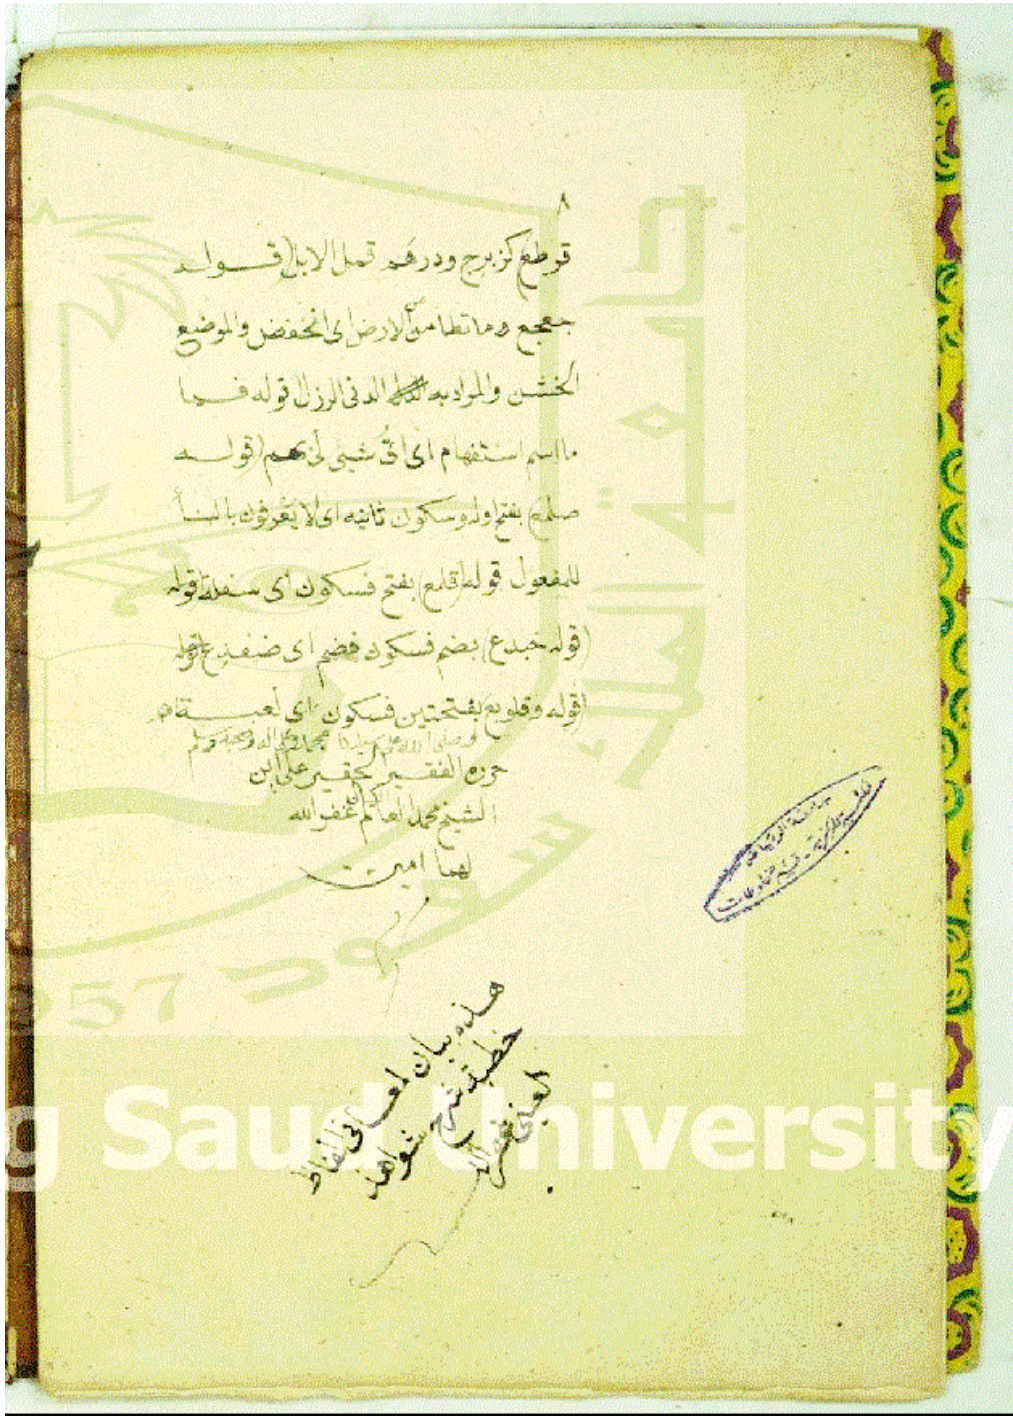 ٨
قرطع كزبرج ودرهم قمل الابل (قوله
جعجع وما تطامن من الارض اى انخفض والموضع
الخشن والمراد به الدنى الرزل قوله فما
ما اسم استفهام اى اىُّ شيئ لى بهم (قوله
صلمع بفتح اوله وسكون ثانيه اى لا يُعْرفون بالبنأ
للمفعول قوله (قلمع) بفتح فسكون اى سفلة قوله
(قوله خبدع) بضم فسكون فضم اى ضفدع
(قوله وقلوبع بفتحتين فسكون اى لعبة
وصلى الله على سيدنا محمد وعلى اله وصحبه وسلم
حرره الفقير الحقير على ابن
الشيخ محمد غفر الله
لهما امين
هذه بيان لمعانى الفاظ
خطبة شرح شواهد
العينى
جامعة الرياض
قسم المخطوطات
جامعة الملك سعود
1957
King Saud University